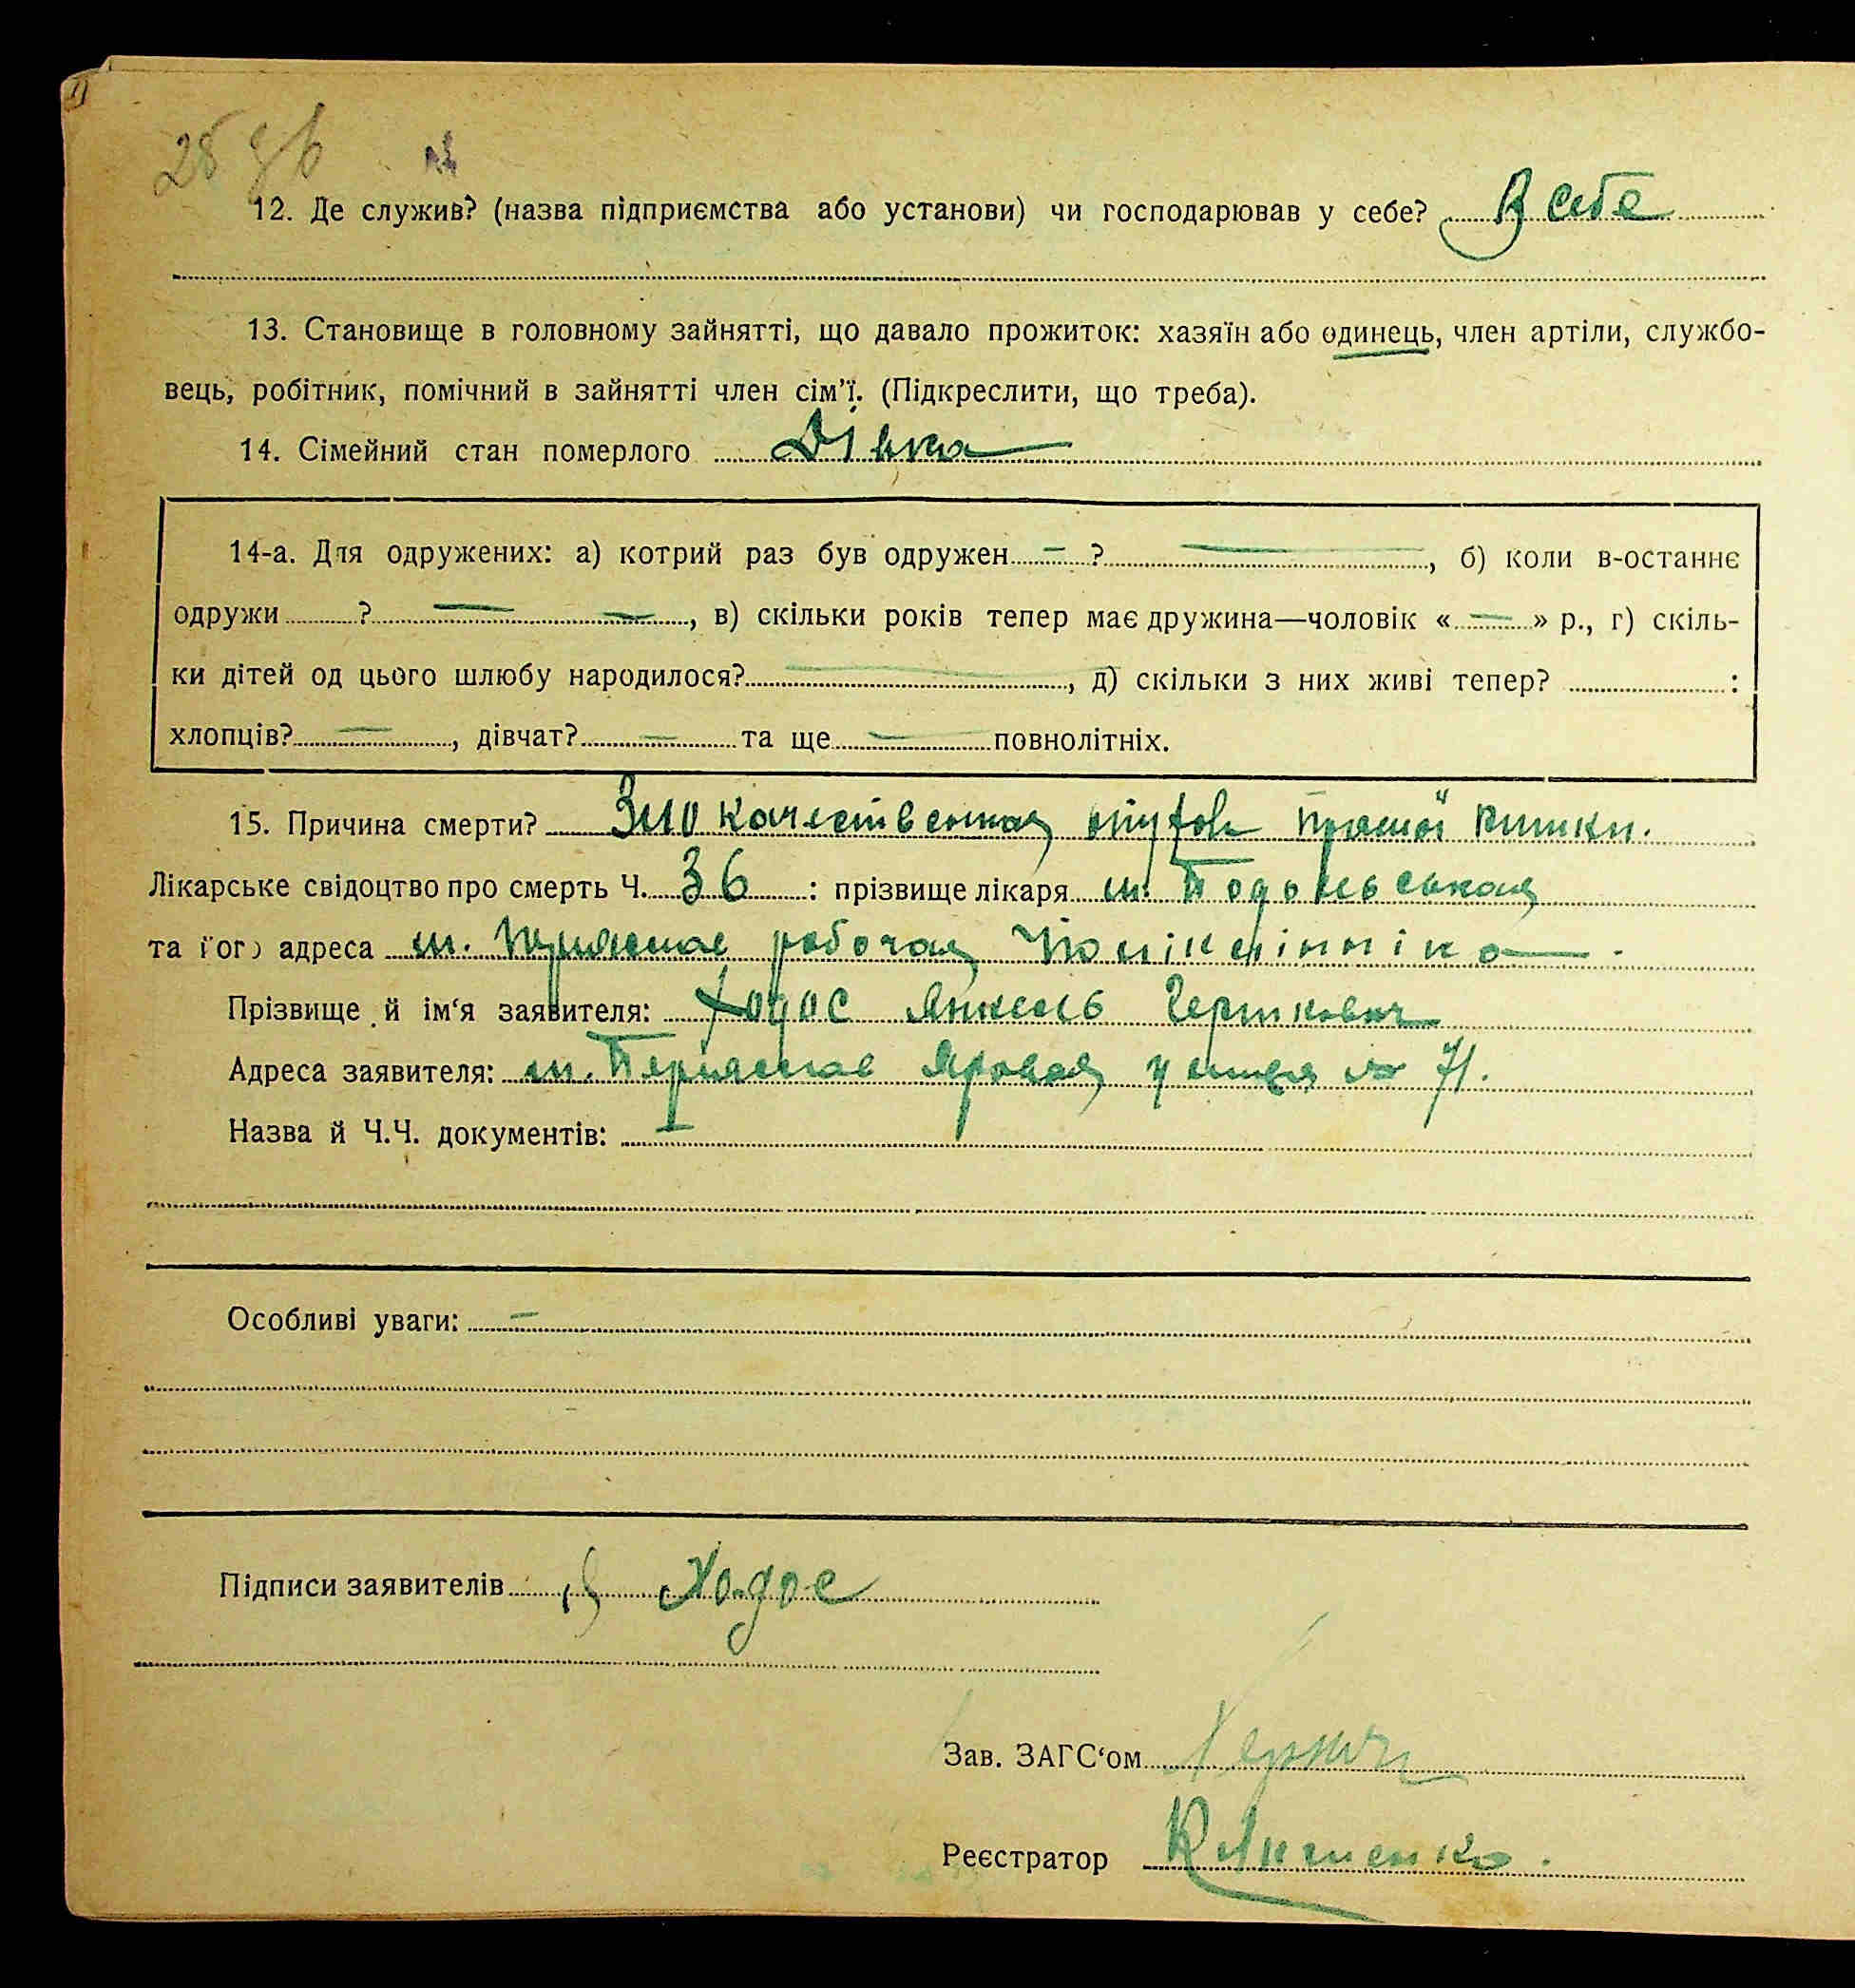 28 зв
12. Де служив? (назва підприємства або установи) чи господарював у себе? В себе
13. Становище в головному зайнятті, що давало прожиток: хазяїн або одинець, член артіли, службо-
вець, робітник, помічний в зайнятті член сім'ї. (Підкреслити, що треба).
14. Сімейний стан померлого Дівка
14-а. Для одружених: а) котрий раз був одружен — ? —, б) коли в-останнє
одружи ? — —, в) скільки років тепер має дружина—чоловік « — » р., г) скіль-
ки дітей од цього шлюбу народилося? —, д) скільки з них живі тепер? :
хлопців? —, дівчат? — та ще — повнолітніх.
15. Причина смерти? Злокачественная опухоль прямої кишки.
Лікарське свідоцтво про смерть Ч. 36 : прізвище лікаря м. Подольская
та його адреса м. рабочая Поліклініка — .
Прізвище й ім'я заявителя: Ходос Янкель Гершкович
Адреса заявителя: м. Яровая улица № 71.
Назва й Ч.Ч. документів:
Особливі уваги: —
Підписи заявителів Я Ходос
Зав. ЗАГС'ом
Реєстратор